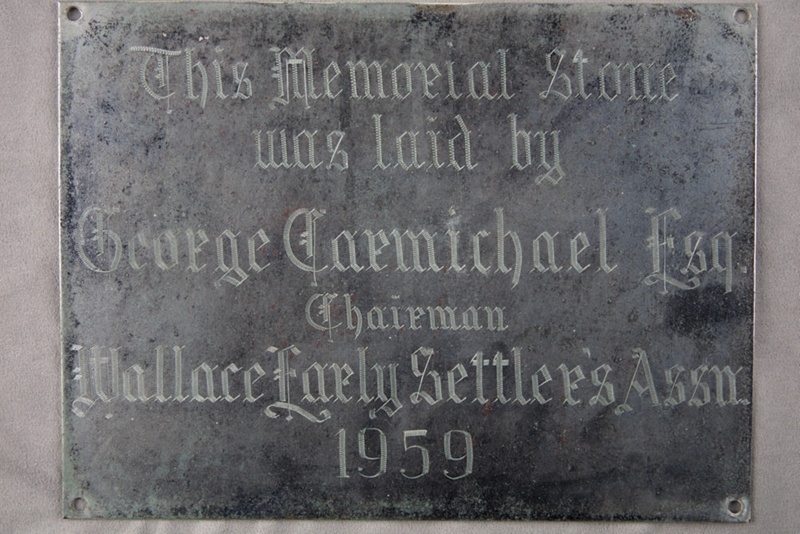 This Memorial Stone
was laid by
George Carmichael Esq.
Chairman
Wallace Early Settler's Assn.
1959